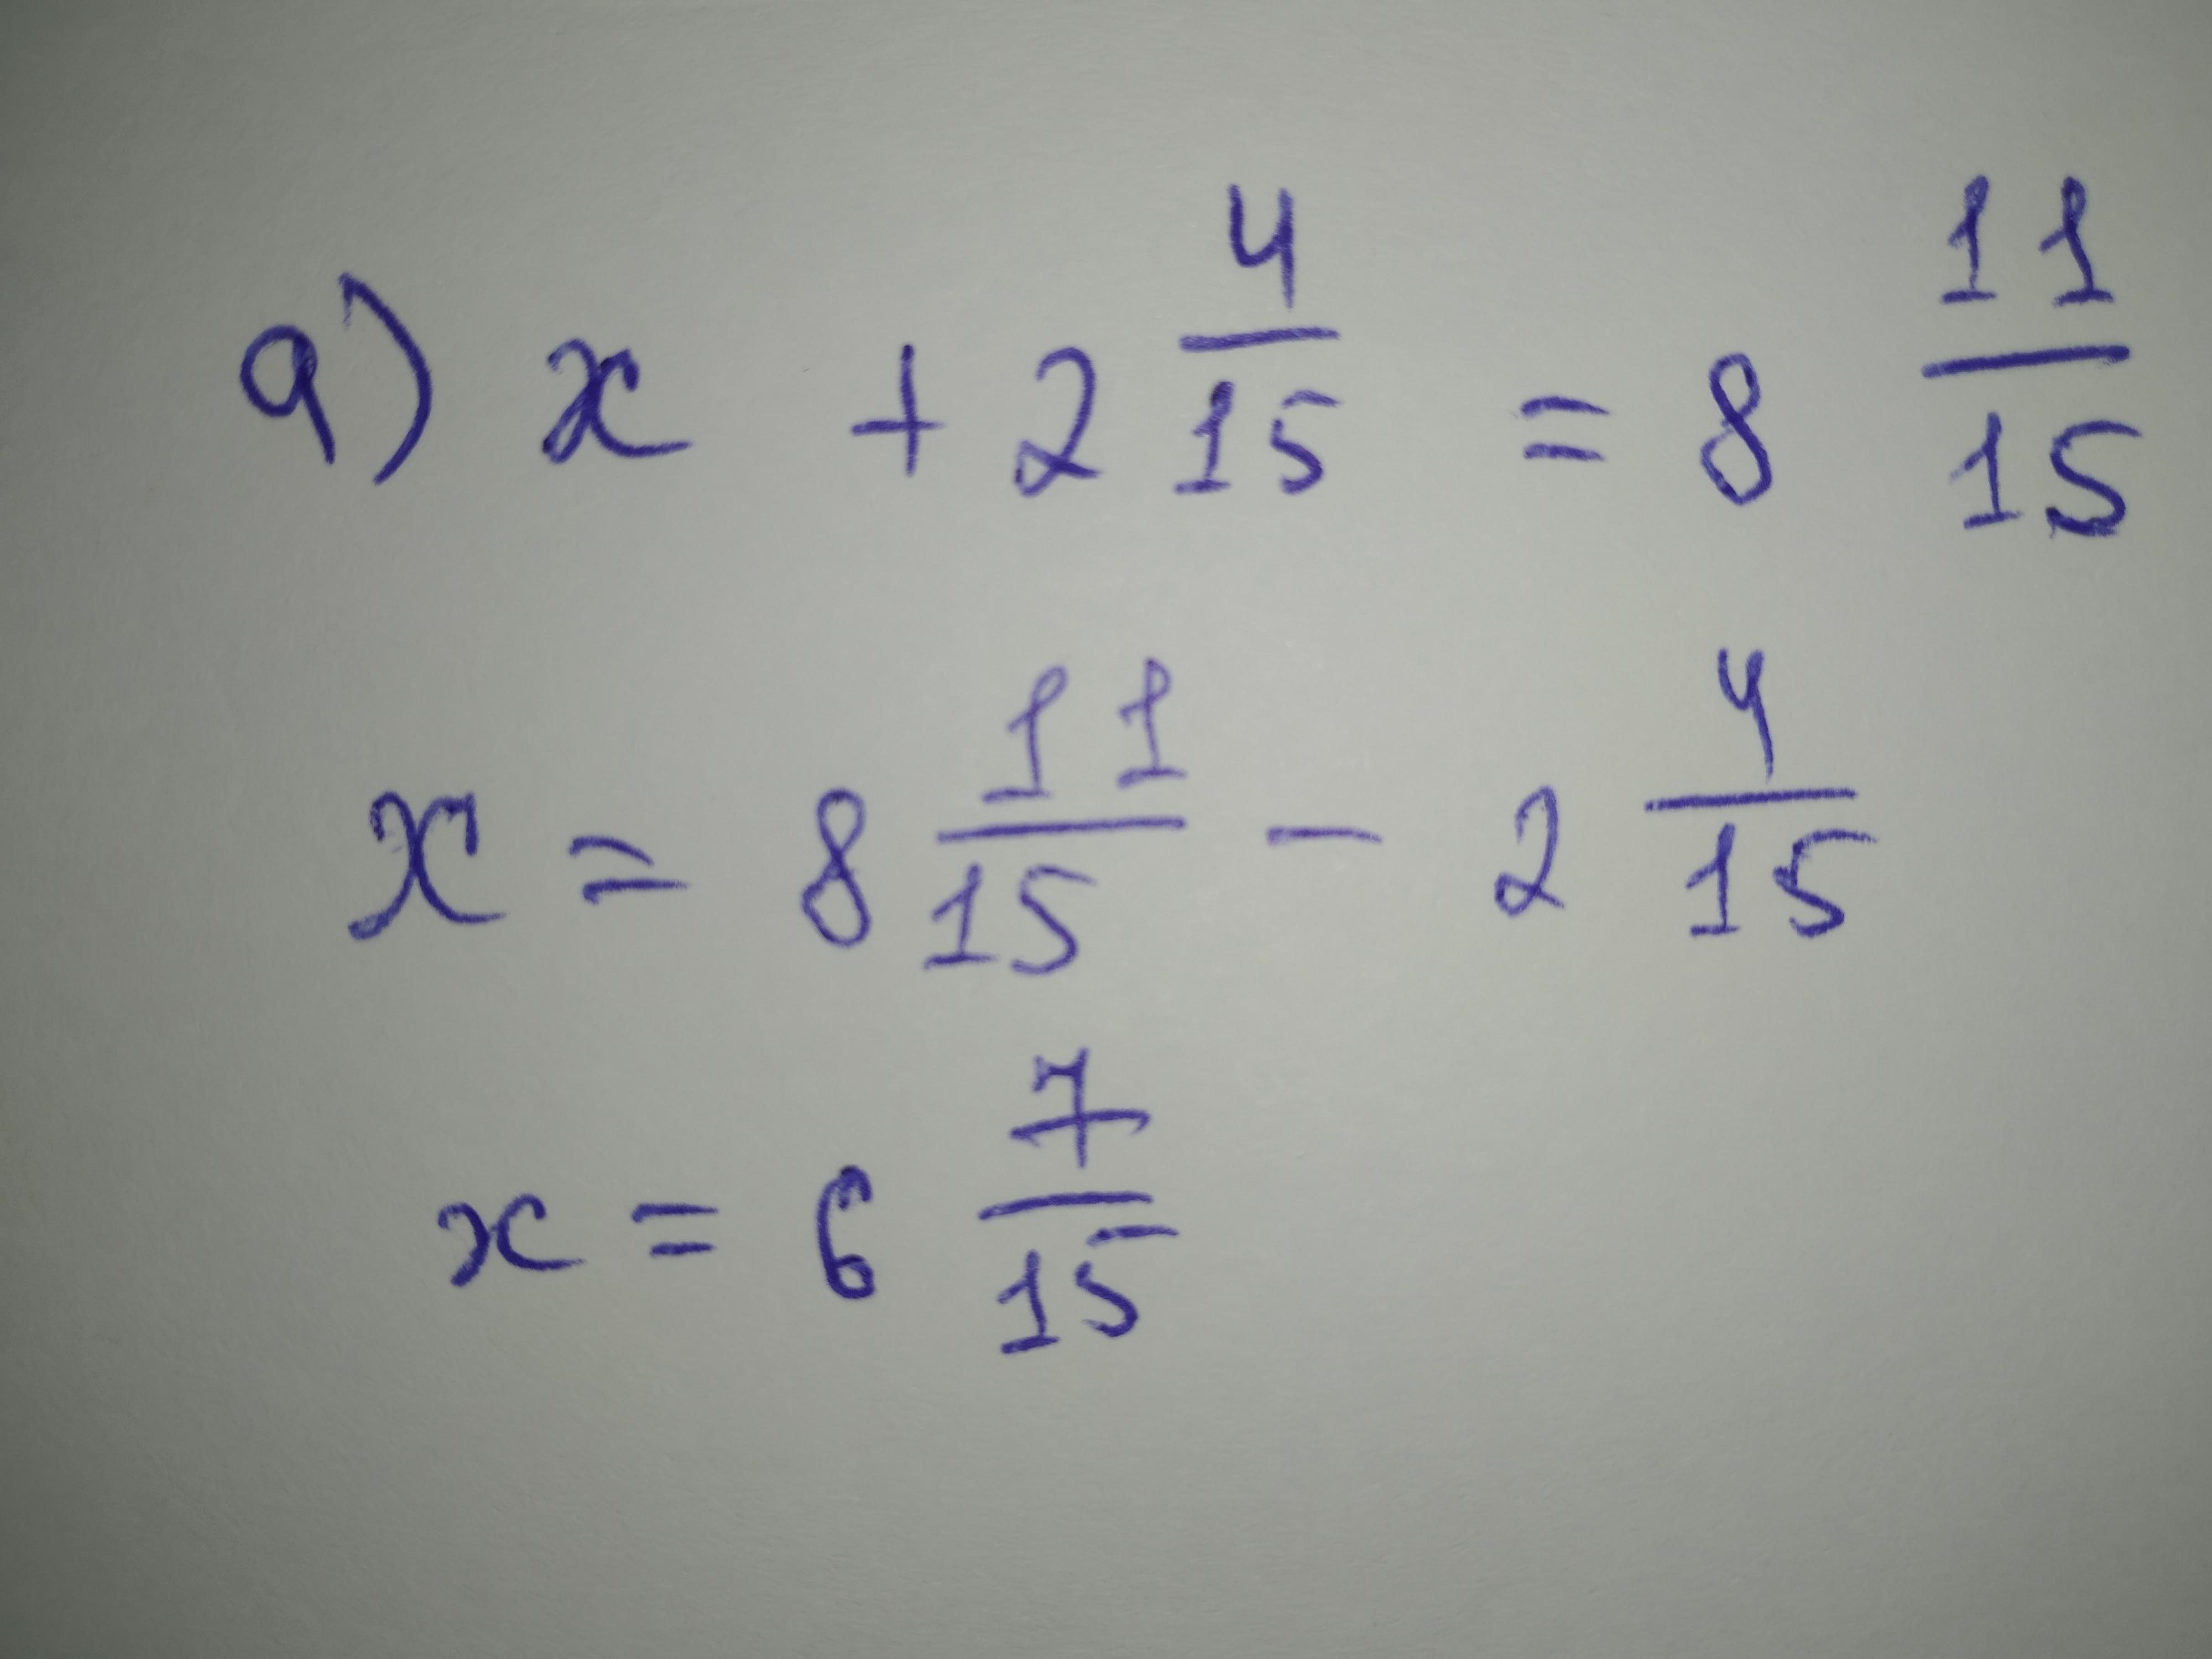 a) x + 2 4/15 = 8 11/15
x = 8 11/15 - 2 4/15
x = 6 7/15